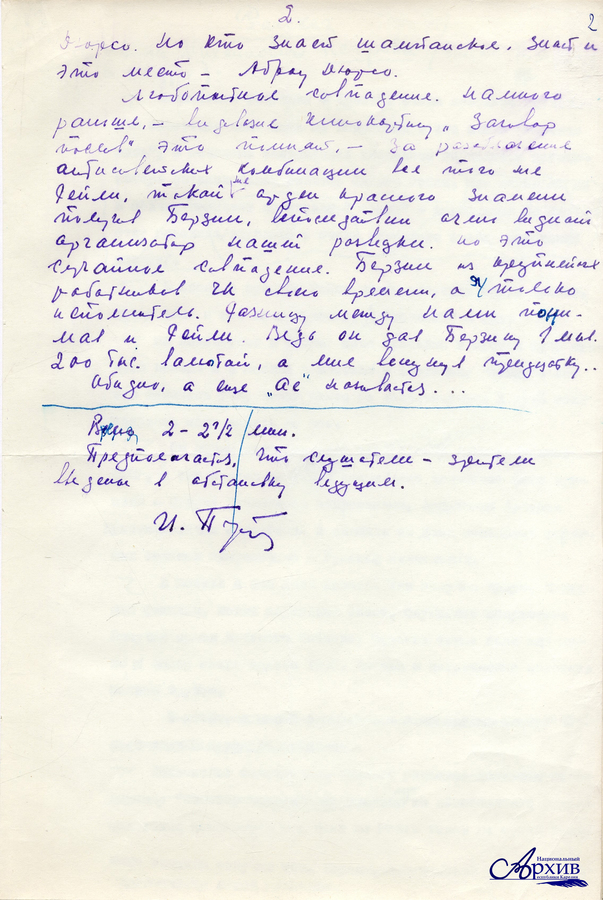 2.
2
Дюрсо. Но кто знает шампанское, знает и
это место – Абрау Дюрсо.
Любопытное совпадение. Намного
раньше, – видевшие кинокартину „Заговор
послов" это помнят, – за разоблачение
антисоветских комбинации все того же
Рейли, такой же орден красного знамени
получил Берзин, впоследствии очень видный
организатор нашей разведки. Но это
случайное совпадение. Берзин из крупнейших
работников ЧК своего времени, а я только
исполнитель. Разницу между нами пони-
мал и Рейли. Ведь он дал Берзину 1 мил.
200 тыс. валютой, а мне всунул тридцатку..
Обидно, а еще „Ас" называется...
Время 2 – 2 1/2 мин.
Предполагается, что слушатели – зрители
введены в обстановку ведущим.
И. П
Национальный
Архив
республики Карелия